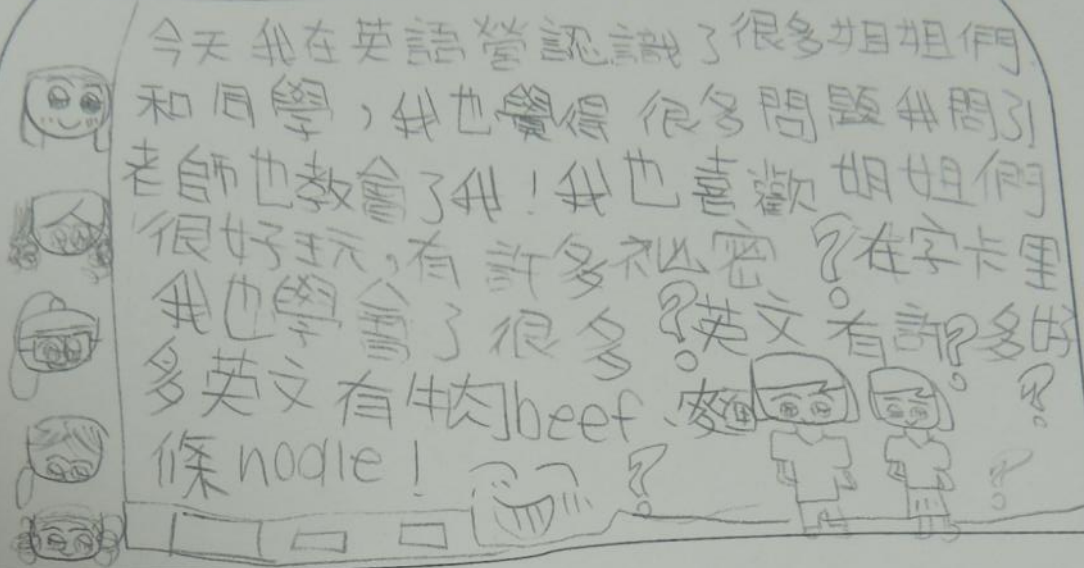 今天我在英語營認識了很多姐姐們
和同學，我也覺得很多問題我問了
老師也教會了我！我也喜歡姐姐們
很好玩，有許多祕密？在字卡里
我也學會了很多？英文有許？多好？
多英文有牛肉beef、麵
條nodle！？？